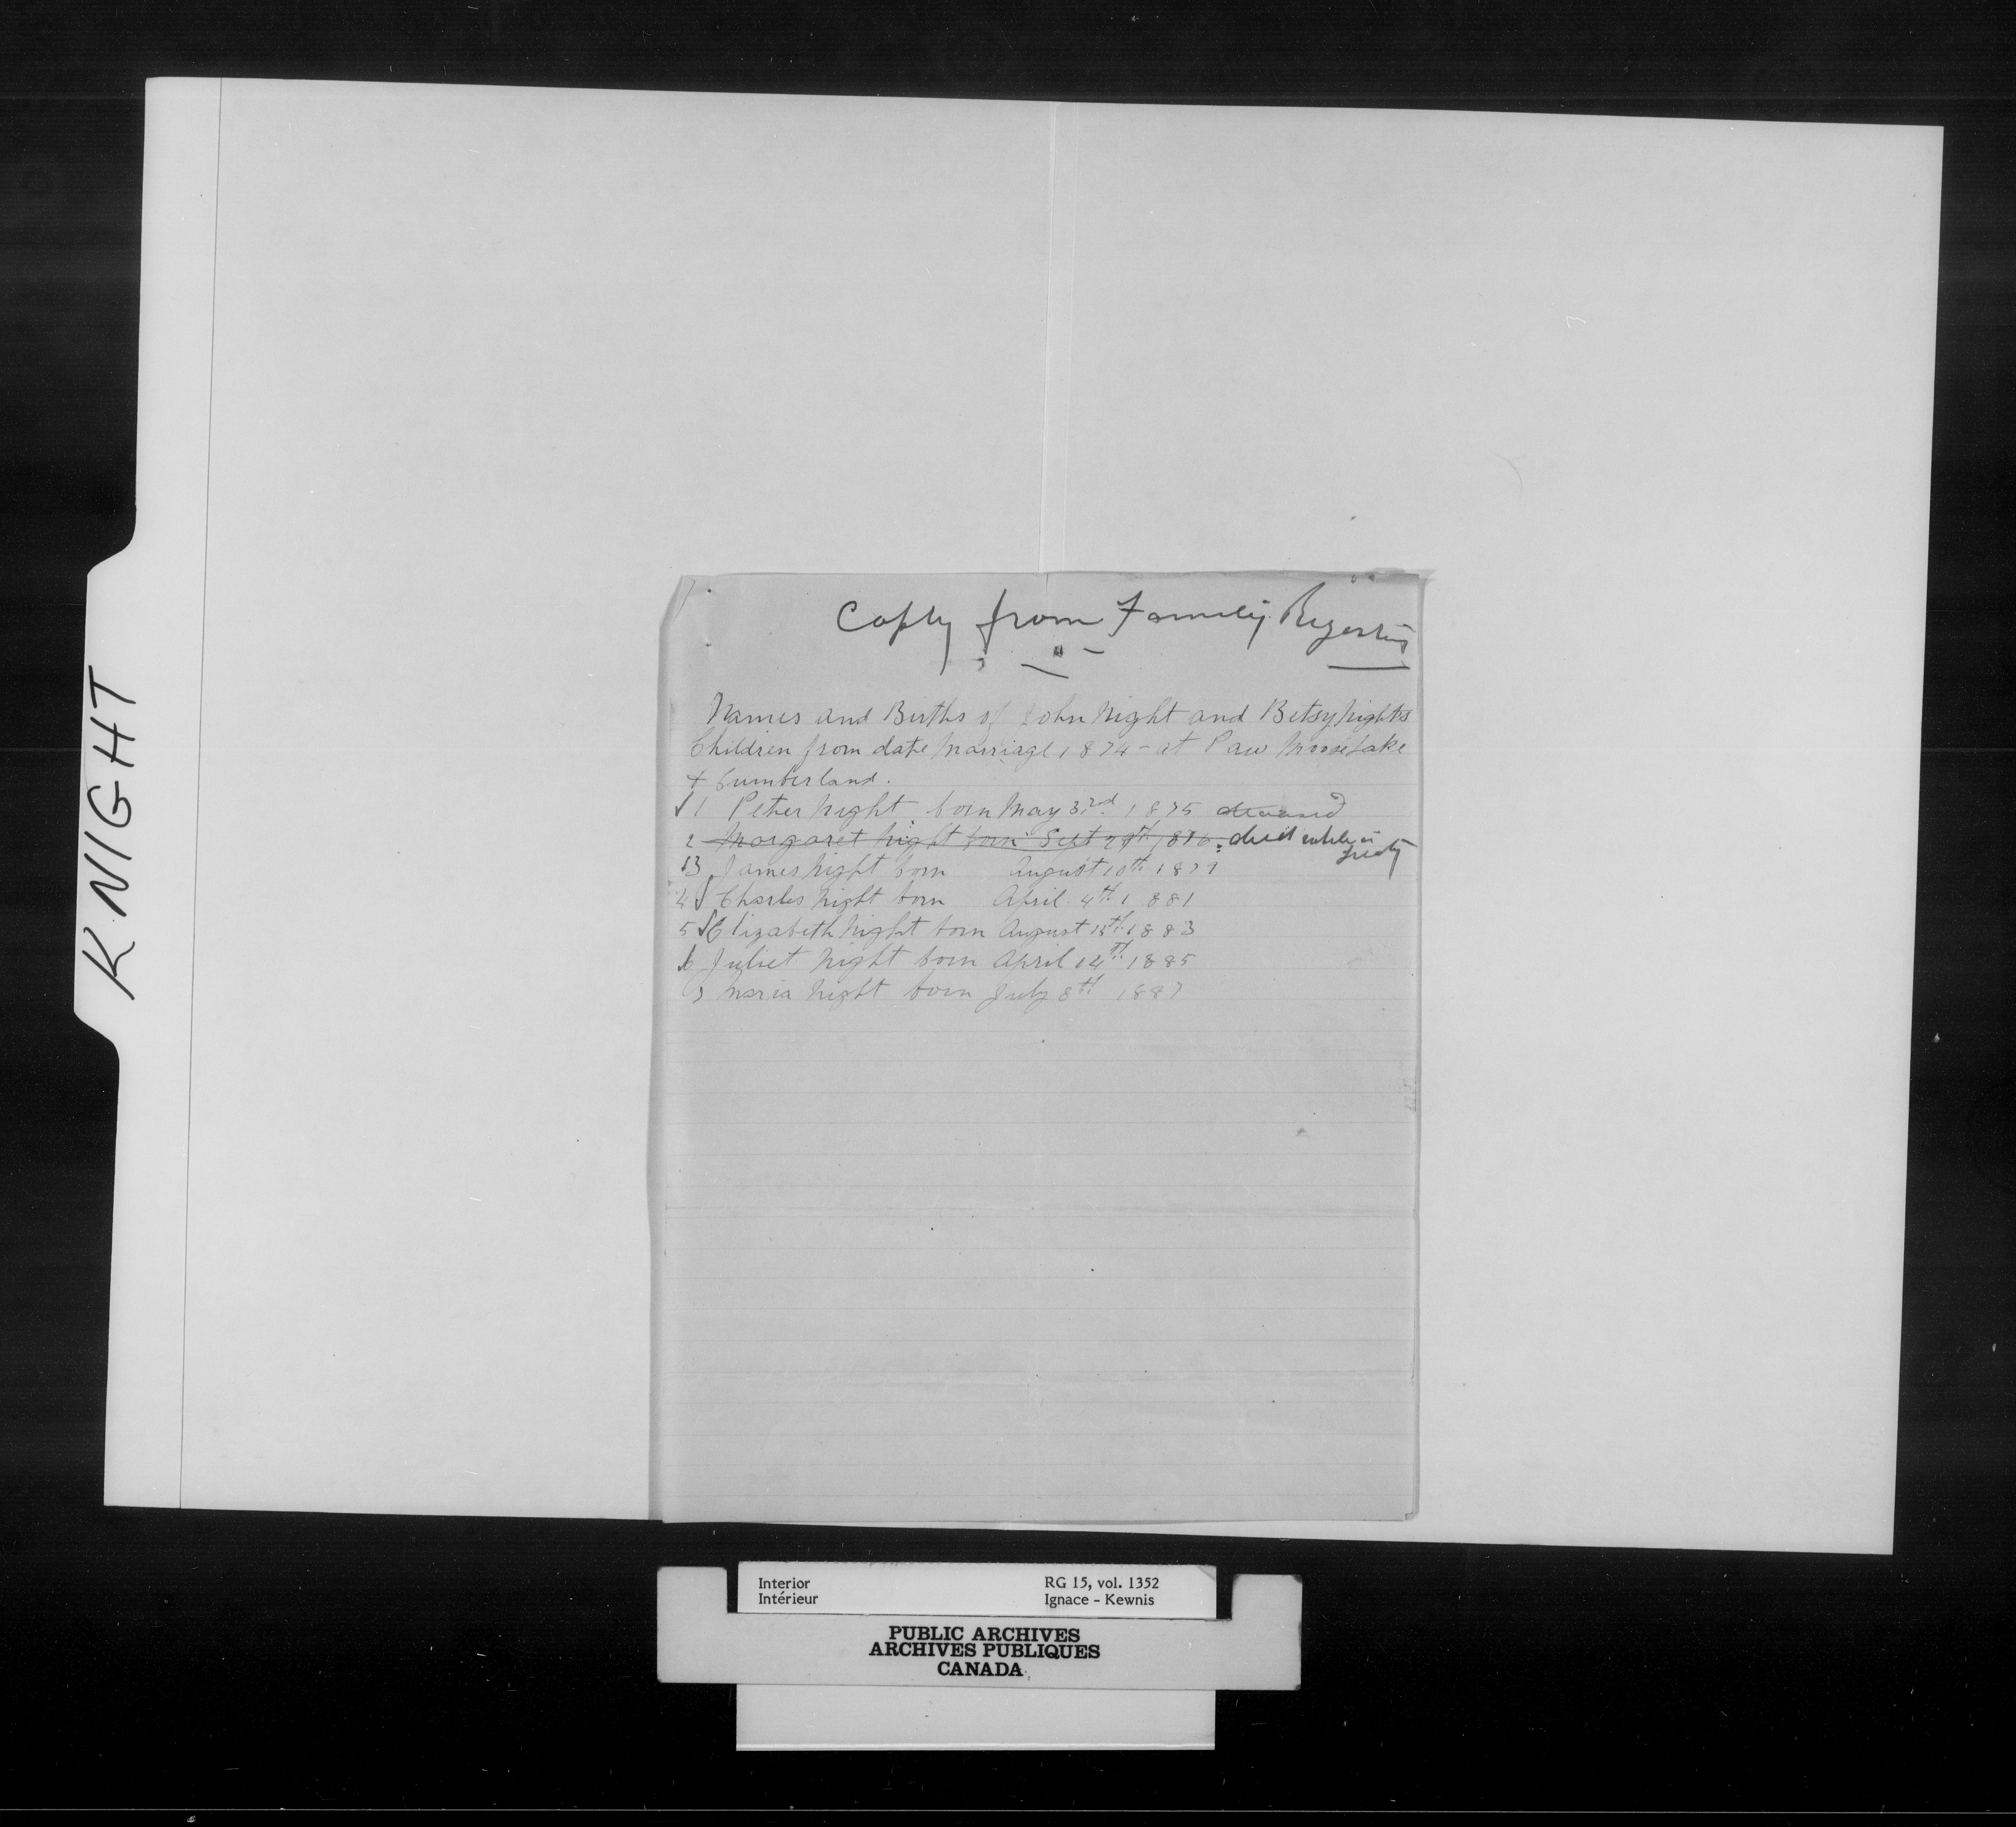 KNIGHT
Copy from Family Register
Names and Births of John Night and Betsy Nights
Children from date Marriage 1874 - at Paw Moose Lake
+ Cumberland.
√ 1 Peter Night born May 3rd 1875 deceased
2 Margaret Night born Sept 1876. died while in
treaty
3 James Night born August 10th 1879
4 √ Charles Night born April 4th 1881
5 √ Elizabeth Night born August 15th 1883
6 Juliet Night born April 14th 1885
7 Maria Night born July 8th 1887
Interior RG 15, vol. 1352
Intérieur Ignace - Kewnis
PUBLIC ARCHIVES
ARCHIVES PUBLIQUES
CANADA